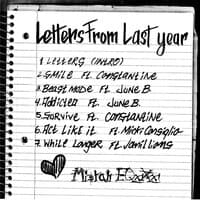 Letters From Last year
1 LETTERS (INTRO)
2. SMILE Ft. Constantine
3. Beast mode Ft. June B.
4. Addicted Ft. June B.
5. Survive Ft. Constantine
6. Act Like it Ft. Micki Consiglio
7. While Longer Ft.